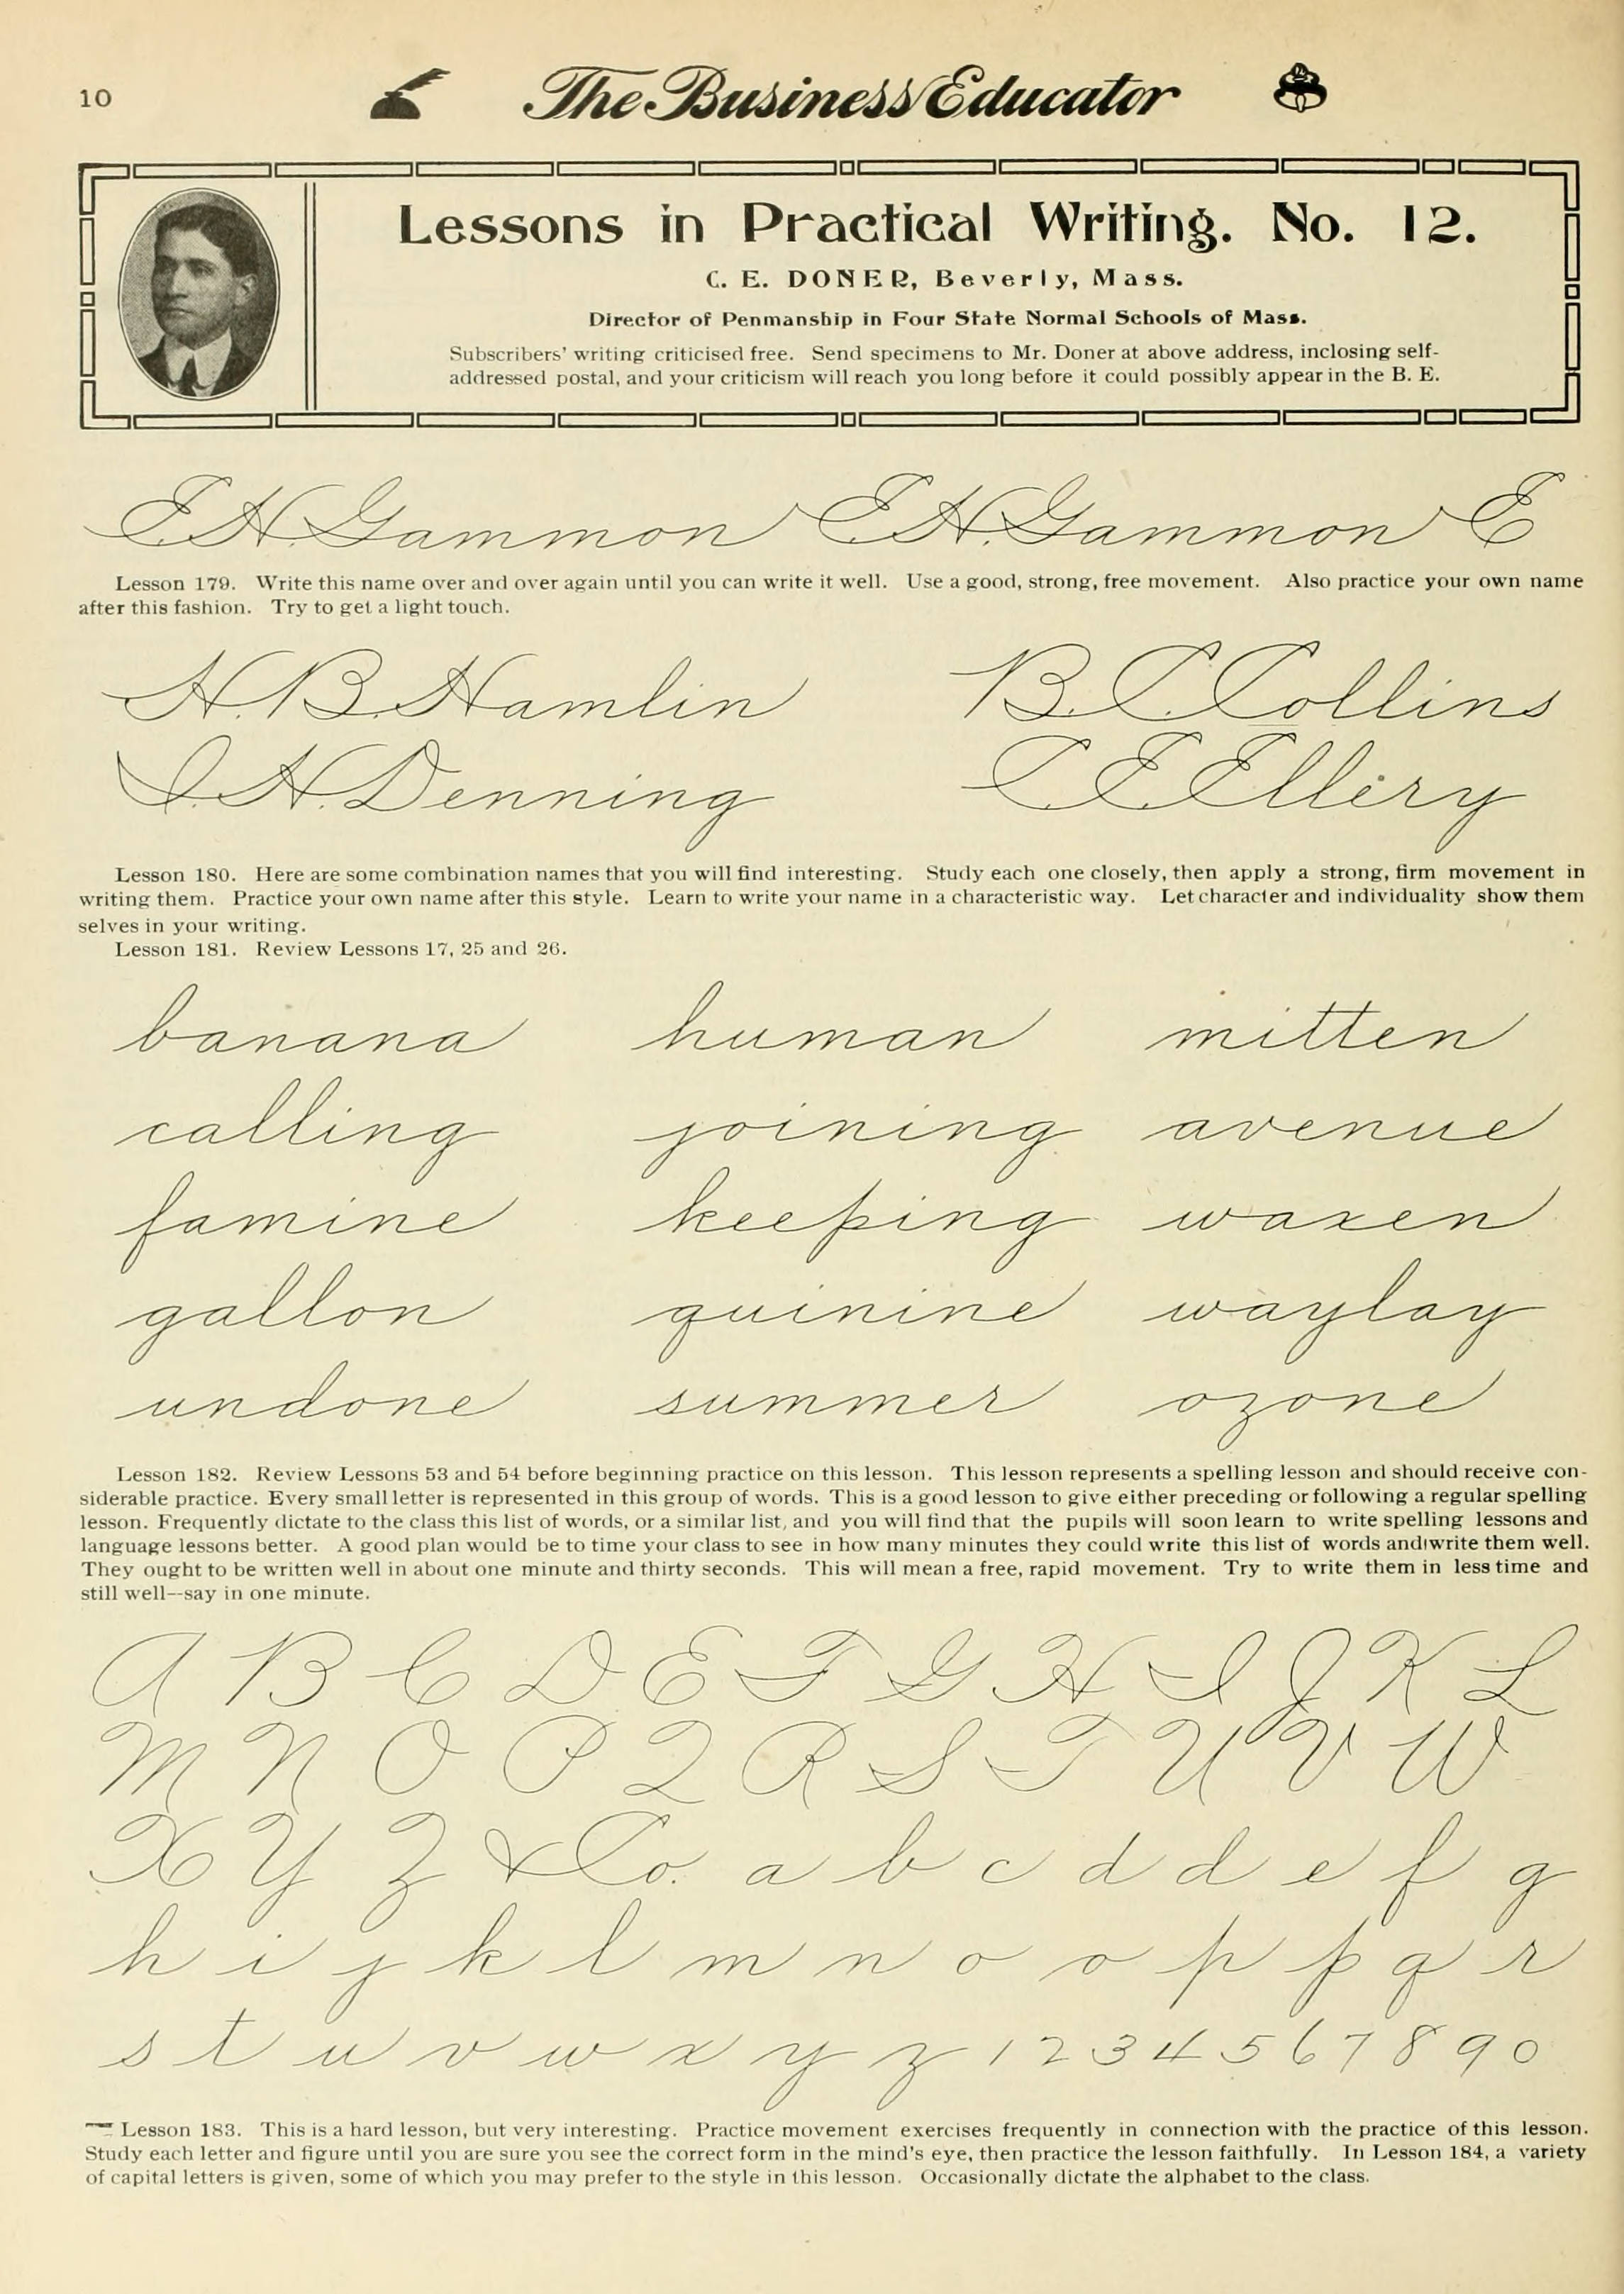 10
The Business Educator
Lessons in Practical Writing. No. 12.
C. E. DONER, Beverly, Mass.
Director of Penmanship in Four State Normal Schools of Mass.
Subscribers' writing criticised free. Send specimens to Mr. Doner at above address, inclosing self-
addressed postal, and your criticism will reach you long before it could possibly appear in the B. E.
E. H. Gammon E. H. Gammon E
Lesson 179. Write this name over and over again until you can write it well. Use a good, strong, free movement. Also practice your own name
after this fashion. Try to get a light touch.
H. B. Hamlin B. C. Collins
I. H. Denning C. E. Ellery
Lesson 180. Here are some combination names that you will find interesting. Study each one closely, then apply a strong, firm movement in
writing them. Practice your own name after this style. Learn to write your name in a characteristic way. Let character and individuality show them
selves in your writing.
Lesson 181. Review Lessons 17, 25 and 26.
banana human mitten
calling joining avenue
famine keeping waxen
gallon quinine waylay
undone summer ozone
Lesson 182. Review Lessons 53 and 54 before beginning practice on this lesson. This lesson represents a spelling lesson and should receive con-
siderable practice. Every small letter is represented in this group of words. This is a good lesson to give either preceding or following a regular spelling
lesson. Frequently dictate to the class this list of words, or a similar list, and you will find that the pupils will soon learn to write spelling lessons and
language lessons better. A good plan would be to time your class to see in how many minutes they could write this list of words and write them well.
They ought to be written well in about one minute and thirty seconds. This will mean a free, rapid movement. Try to write them in less time and
still well--say in one minute.
A B C D E F G H I J K L
M N O P Q R S T U V W
X Y Z & Co. a b c d d e f g
h i j k l m n o o p p q r
s t u v w x y z 1 2 3 4 5 6 7 8 9 0
Lesson 183. This is a hard lesson, but very interesting. Practice movement exercises frequently in connection with the practice of this lesson.
Study each letter and figure until you are sure you see the correct form in the mind's eye, then practice the lesson faithfully. In Lesson 184, a variety
of capital letters is given, some of which you may prefer to the style in this lesson. Occasionally dictate the alphabet to the class.